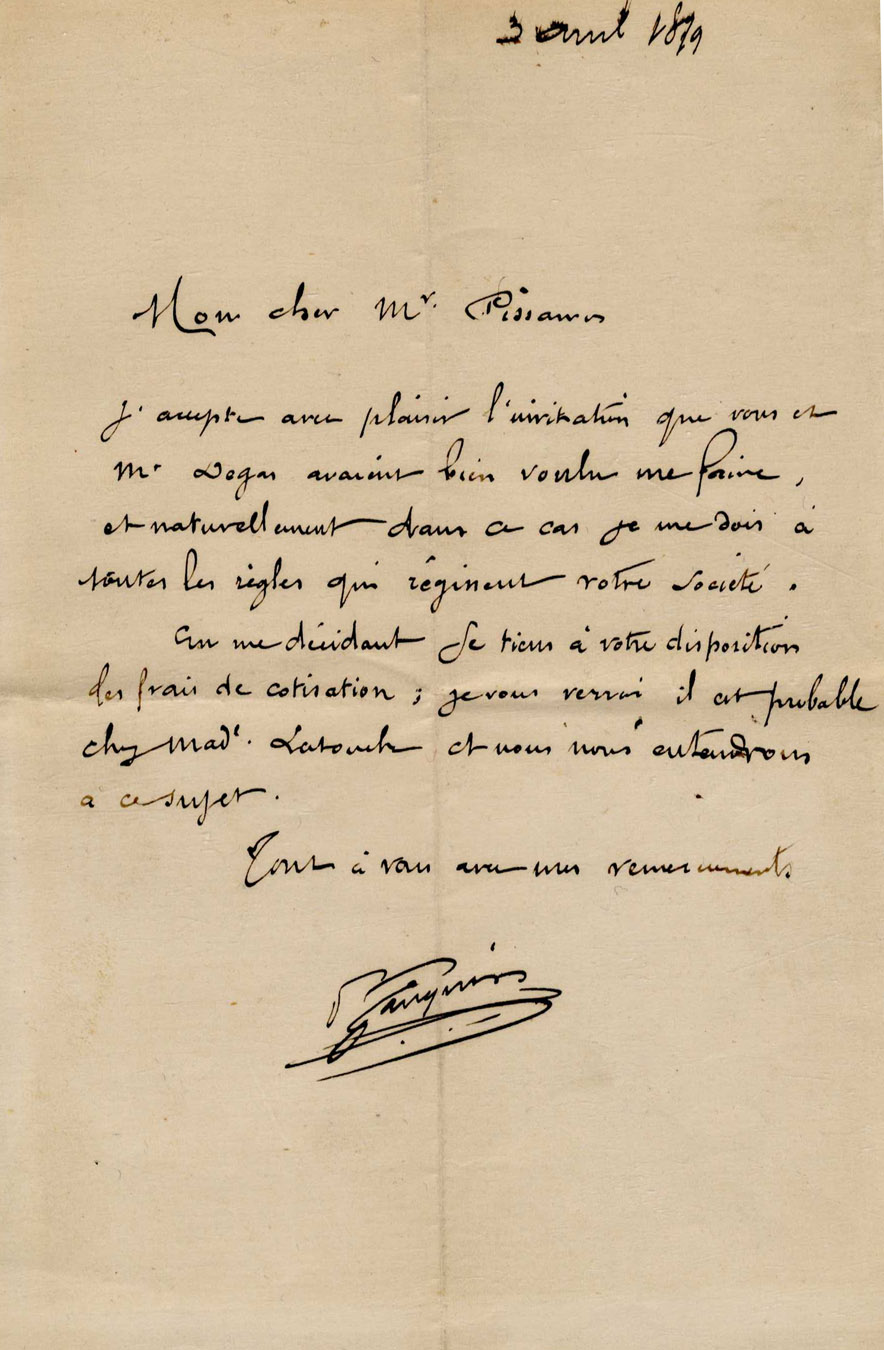 3 avril 1879
Mon cher Mr. Pissarro
J'accepte avec plaisir l'invitation que vous et
Mr Degas avaient bien voulu me faire,
et naturellement dans ce cas je me dois à
toutes les règles qui régissent votre société.
En me décidant je tiens à votre disposition
les frais de cotisation ; je vous verrai il est probable
chez Made. Latouche et nous nous entendrons
à ce sujet.
Tout à vous avec mes remerciements
P Gauguin